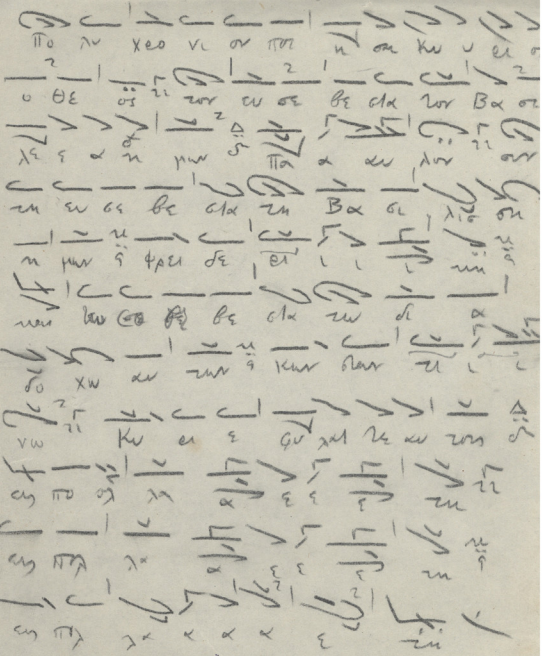 πο λυ χρο νι ον ποι η σαι Κυ υ ρι ο
ο Θε ος τον ευ σε βε στα τον Βα σι
λε ε α η μων Πα α αυ λον συν
τη ευ σε βε στα τη Βα σι λισ ση
η μων φρει δε ρι ι ι ι κη
και τω ευ σε βε στα τω δι α
δο χω αυ των Κων σταν τι ι ι
νω Κυ ρι ε φυ λατ τε αυ τους
εις πο ολ λα α ε ε ε τη
εις πολ λα α ε ε ε τη
εις πολ λα α α α ε τη